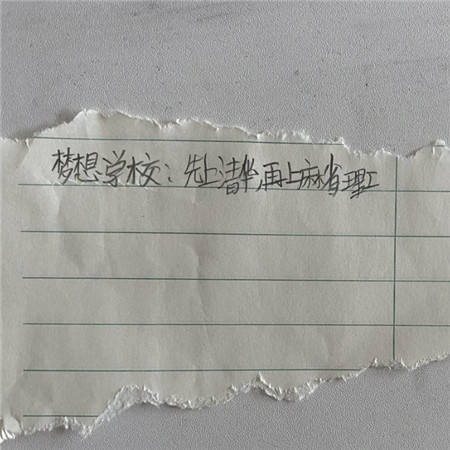 梦想学校：先上清华再上麻省理工